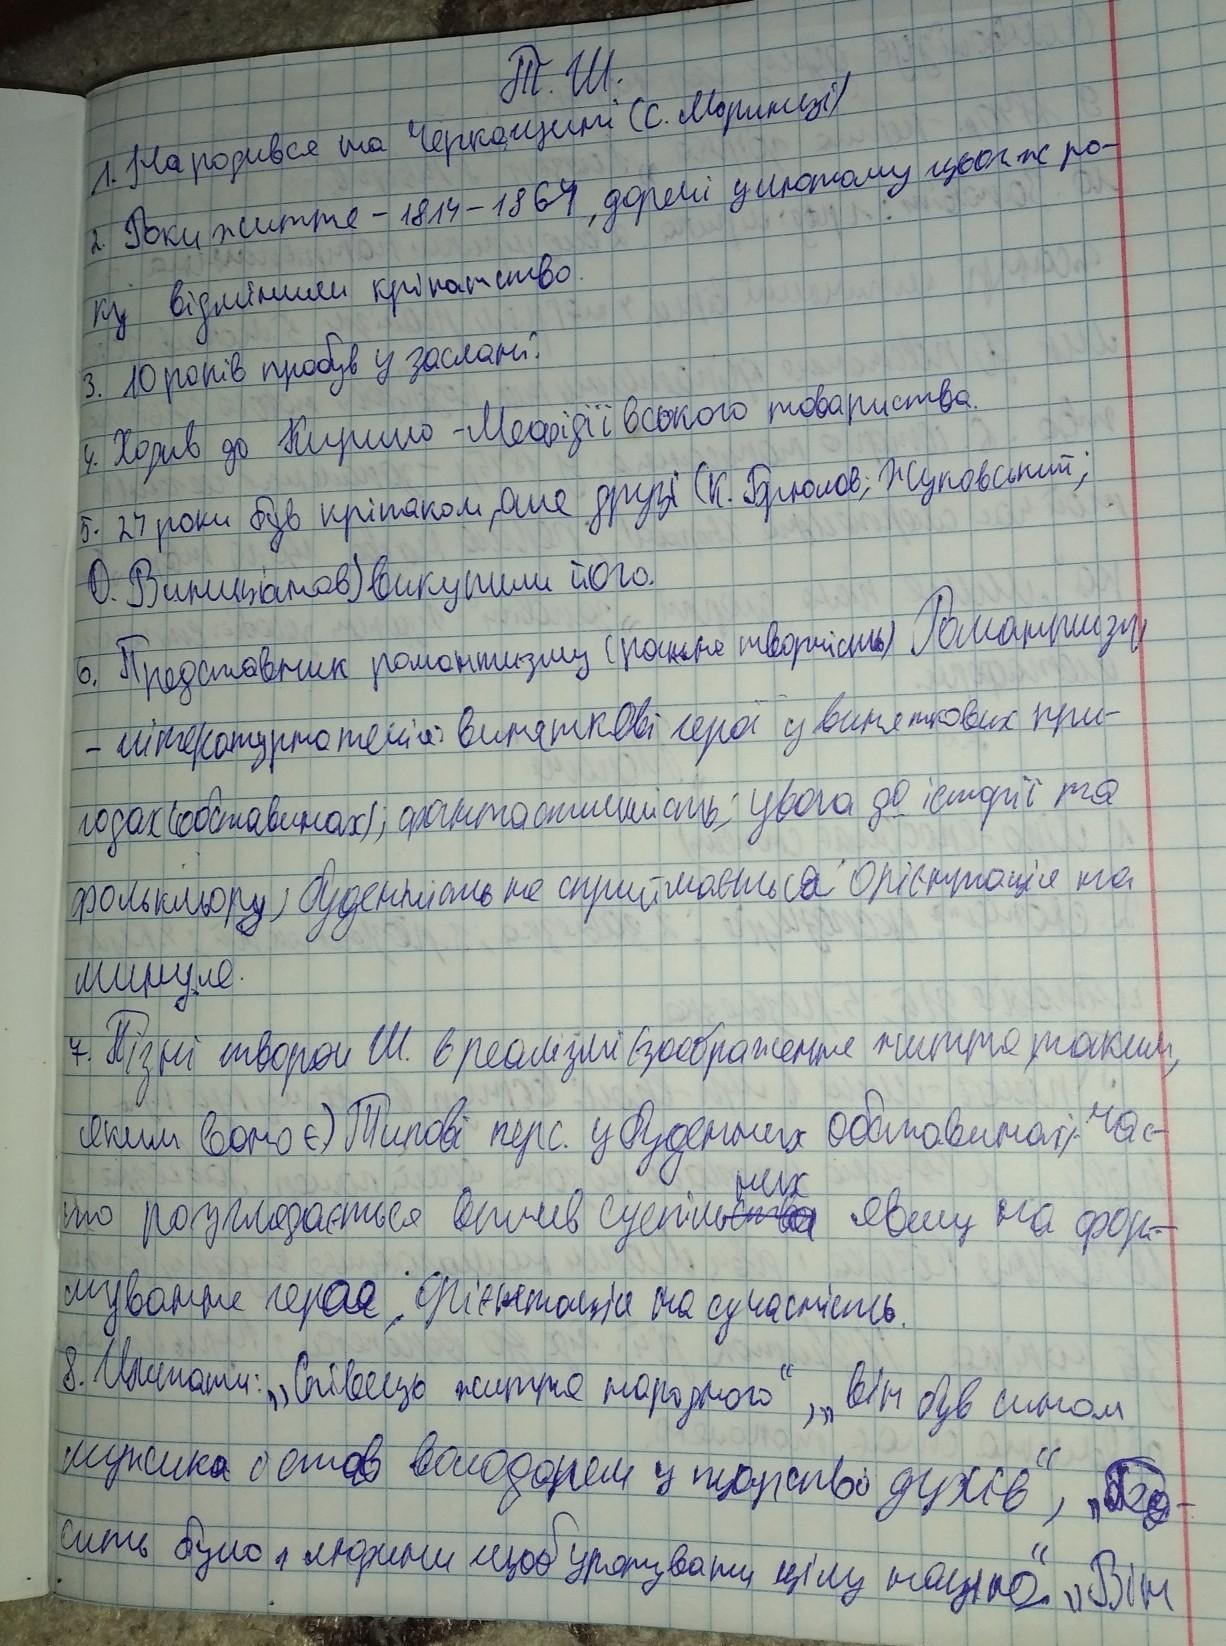 Т. Ш.
1. Народився на Черкащині (с. Моринці)
2. Роки життя - 1814 - 1861, доречі у лютому цього ж ро-
ку відмінили кріпатство.
3. 10 років пробув у заслані.
4. Ходив до Кирило - Мефодіївського товариства.
5. 24 роки був кріпаком, але друзі (К. Брюлов; Жуковський;
О. Венеціанов) викупили його.
6. Представник романтизму (рання творчість) Романтизм
- літературна течія: виняткові герої у виняткових при-
годах (обставинах); фантастичність; увога до історії та
фольклору; буденність не сприймається; орієнтація на
минуле.
7. Пізні твори Ш. в реалізмі (зображення життя таким,
яким воно є) Типові перс. у буденних обставинах; час-
то розглядається вплив суспільних явищ на фор-
мування героя; орієнтація на сучасність.
8. Цитати: „Співець життя народного“, „Він був сином
мужика і став володарем у царстві духів“, „До-
сить було 1 людини щоб уратувати цілу націю“. „Він